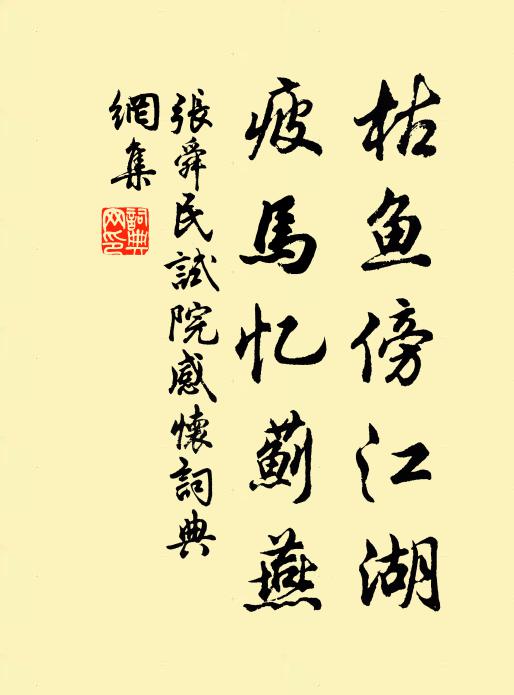 枯鱼傍江湖
疲馬忆薊燕
張舜民試院感懷詞典
網集
詞典
网印